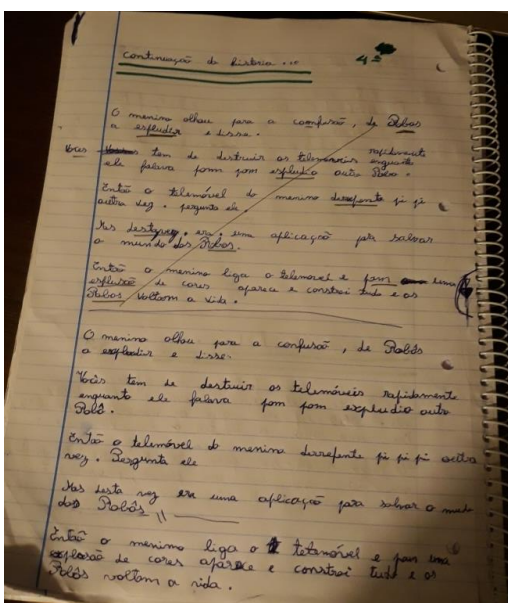 Continuação da história ...
4º
O menino olhou para a comfusão, de Robos
a espludir e disse.
Voçes tem de destruir os telemoveis rapidamente
enquante
ele falava pom pom espludio outro Robo.
Então o telemóvel do menino derrepente pi pi
outra vez. pergunta ele
Mas destavez. era uma aplicação para salvar
o mundo dos Robos.
Então o menino liga o telemovel e pam uma
esplusão de cores aparece e constroi tudo e os
Robos voltam a vida.
O menino olhou para a confusão, de Robôs
a explodir e disse.
Vocês tem de destruir os telemóveis rapidamente
enquanto ele falava pom pom expludio outro
Robô.
Então o telemóvel do menino derrepente pi pi pi outra
vez. Pergunta ele
Mas desta vez era uma aplicação para salvar o
dos Robôs
Então o menino liga o telemóvel e pam uma
explosão de cores aparece e constroi tudo e os
Robôs voltam a vida.